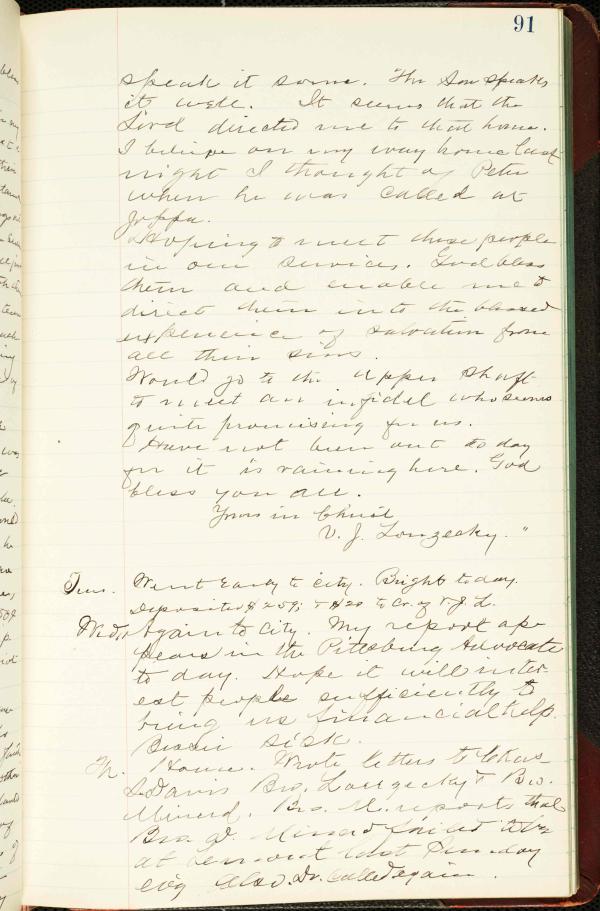 91
speak it some. The Son speaks
it well. It seems that the
Lord directed me to that home.
I believe on my way home last
night I thought of Peter
when he was called at
Joppa.
Hoping to meet these people
in our services. God bless
them and enable me to
direct them into the blessed
experience of salvation from
all their sins.
Would go to the upper shaft
to meet an infidel who seems
quite promising for us.
Have not been out to day
for it is raining here. God
bless you all.
Yours in Christ
V. J. Louzecky."
Tues. Went Early to city. Bright to day.
Deposited $259; + $20 to Cr. of V. J. L.
Wed, Again to City. My report ap-
pears in the Pittsburg Advocate
to day. Hope it will inter-
est people sufficiently to
bring us financial help.
Bessie sick.
Th. Home. Wrote letters to Chas
S. Davis Bro. Louzecky & Bro.
Minerd. Bro. M. reports that
Bro. Minerd failed to be
at last Sunday
ev'g also. Dr. Called again.